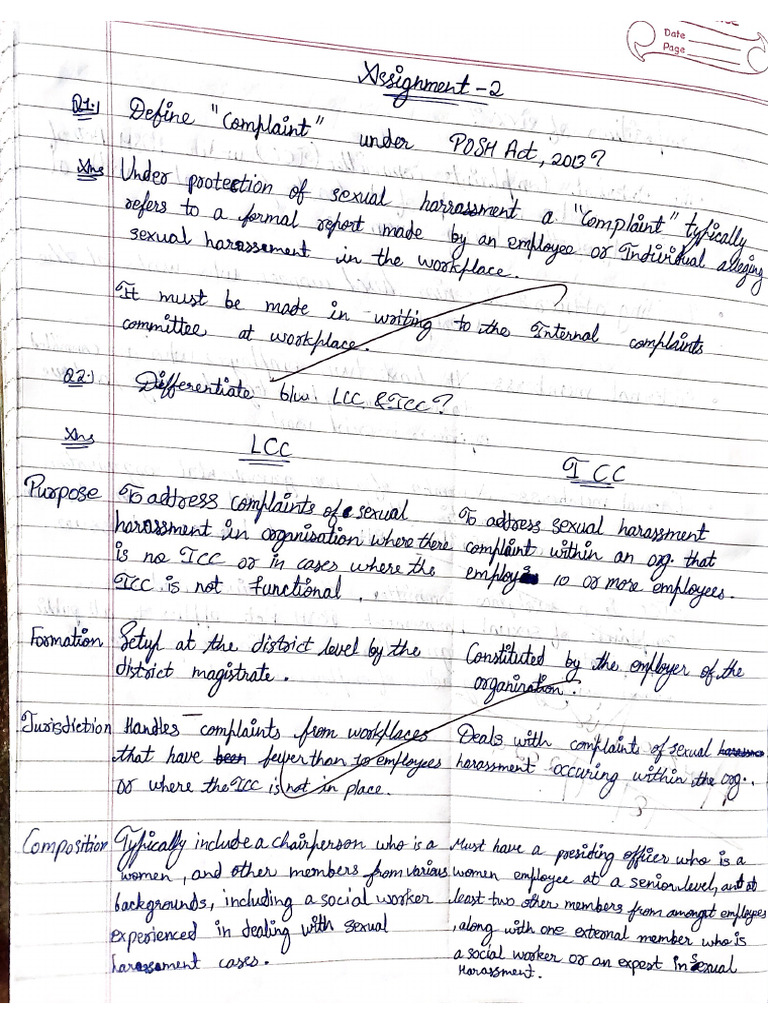 Date
Page
Assignment - 2
Q1.) Define "Complaint" under POSH Act, 2013?
Ans Under protection of sexual harrassment a "Complaint" typically
refers to a formal report made by an employee or Individual alleging
sexual harassement in the workplace.
It must be made in writing to the Internal complaints
committee at workplace.
Q2.) Differentiate b/w. LCC & ICC?
Ans LCC ICC
Purpose To address complaints of sexual
harassment in organisation where there
is no ICC or in cases where the
ICC is not functional.
To address sexual harassment
complaint within an org. that
employs 10 or more employees.
Formation Setup at the district level by the
district magistrate.
Constituted by the employer of the
organization.
Jurisdiction Handles complaints from workplaces
that have been fewer than 10 employees
or where the ICC is not in place.
Deals with complaints of sexual
harassment occuring within the org..
Composition Typically include a chairperson who is a
women, and other members from various
backgrounds, including a social worker
experienced in dealing with sexual
harassement cases.
Must have a presiding officer who is a
women employee at a senior level, and at
least two other members from amongst employees
, along with one external member who is
a social worker or an expert in sexual
Harassment.